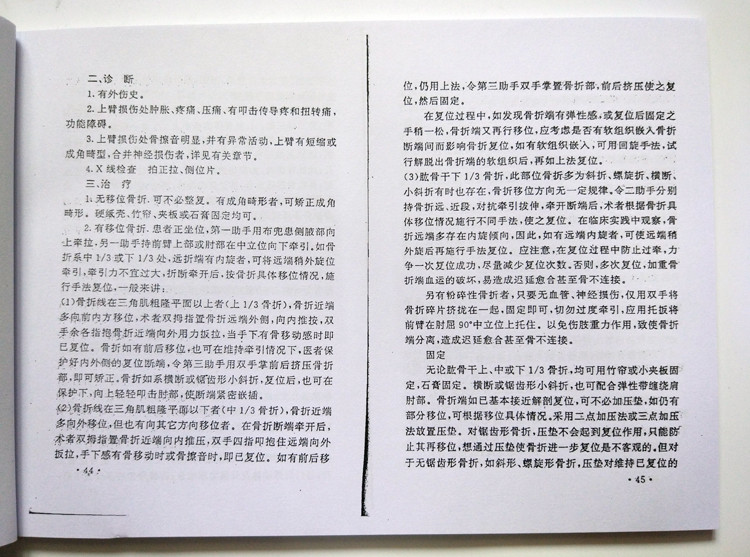 二、诊 断
1.有外伤史。
2.上臂损伤处肿胀、疼痛、压痛,有叩击传导疼和扭转痛,
功能障碍。
3.上臂损伤处骨擦音明显,并有异常活动,上臂有短缩或
成角畸型,合并神经损伤者,详见有关章节。
4.X线检查 拍正拉、侧位片。
三、治 疗
1.无移位骨折,可不必整复。有成角畸形者,可矫正成角
畸形。硬纸壳、竹帘、夹板或石膏固定均可。
2.有移位骨折,患者正坐位,第一助手用布兜患侧腋部向
上牵拉,另一助手持前臂上部或肘部在中立位向下牵引。如骨
折系中1/3或下1/3处,远折端有内旋者,可将远端稍外旋位
牵引,牵引力不宜过大,折断牵开后,按骨折具体移位情况,施
行手法复位,一般来讲:
(1)骨折线在三角肌粗隆平面以上者(上1/3骨折),骨折近端
多向前内方移位,术者双拇指置骨折远端外侧,向内推按,双
手余各指抱骨折近端向外用力扳拉,当手下有骨移动感时即
已复位。骨折如有前后移位,也可在维持牵引情况下,医者保
护好内外侧的复位断端,令第三助手用双手掌前后挤压骨折
部,即可矫正。骨折如系横断或锯齿形小斜折,复位后,也可在
保护下,向上轻轻叩击肘部,使断端紧密嵌插。
(2)骨折线在三角肌粗隆平面以下者(中1/3骨折),骨折近端
多向外移位,但也有向其它方向移位者。在骨折断端牵开后,
术者双拇指置骨折近端向内推压,双手四指叩抱住远端向外
扳拉,手下感有骨移动时或骨擦音时,即已复位。如有前后移
·44·
位,仍用上法,令第三助手双手掌置骨折部,前后挤压使之复
位,然后固定。
在复位过程中,如发现骨折端有弹性感,或复位后固定之
手稍一松,骨折端又再行移位,应考虑是否有软组织嵌入骨折
断端间而影响骨折复位,如有软组织嵌入,可用回旋手法,试
行解脱出骨折端的软组织后,再如上法复位。
(3)肱骨干下1/3骨折,此部位骨折多为斜折、螺旋折,横断、
小斜折有时也存在,骨折移位方向无一定规律。令二助手分别
持骨折远、近段,对抗牵引拔伸,牵开断端后,术者根据骨折具
体移位情况施行不同手法,使之复位。在临床实践中观察,骨
折远端多存在内旋倾向,因此,如有远端内旋者,可使远端稍
外旋后再施行手法复位。应注意,在复位过程中防止过牵,力
争一次复位成功,尽量减少复位次数。否则,多次复位,加重骨
折端血运的破坏,易造成迟延愈合甚至骨不连接。
另有粉碎性骨折者,只要无血管、神经损伤,仅用双手将
骨折碎片挤拢在一起,固定即可,切勿过度牵引,应用托扳将
前臂在肘屈90°中立位上托住。以免伤肢重力作用,致使骨折
端分离,造成迟延愈合甚至骨不连接。
固定
无论肱骨干上、中或下1/3骨折,均可用竹帘或小夹板固
定,石膏固定。横断或锯齿形小斜折,也可配合弹性带缠绕肩
肘部。骨折端如已基本接近解剖复位,可不必加压垫,如仍有
部分移位,可根据移位具体情况。采用二点加压法或三点加压
法放置压垫。对锯齿形骨折,压垫不会起到复位作用,只能防
止其再移位,想通过压垫使骨折进一步复位是不客观的。但对
于无锯齿形骨折,如斜形、螺旋形骨折,压垫对维持已复位的
·45·